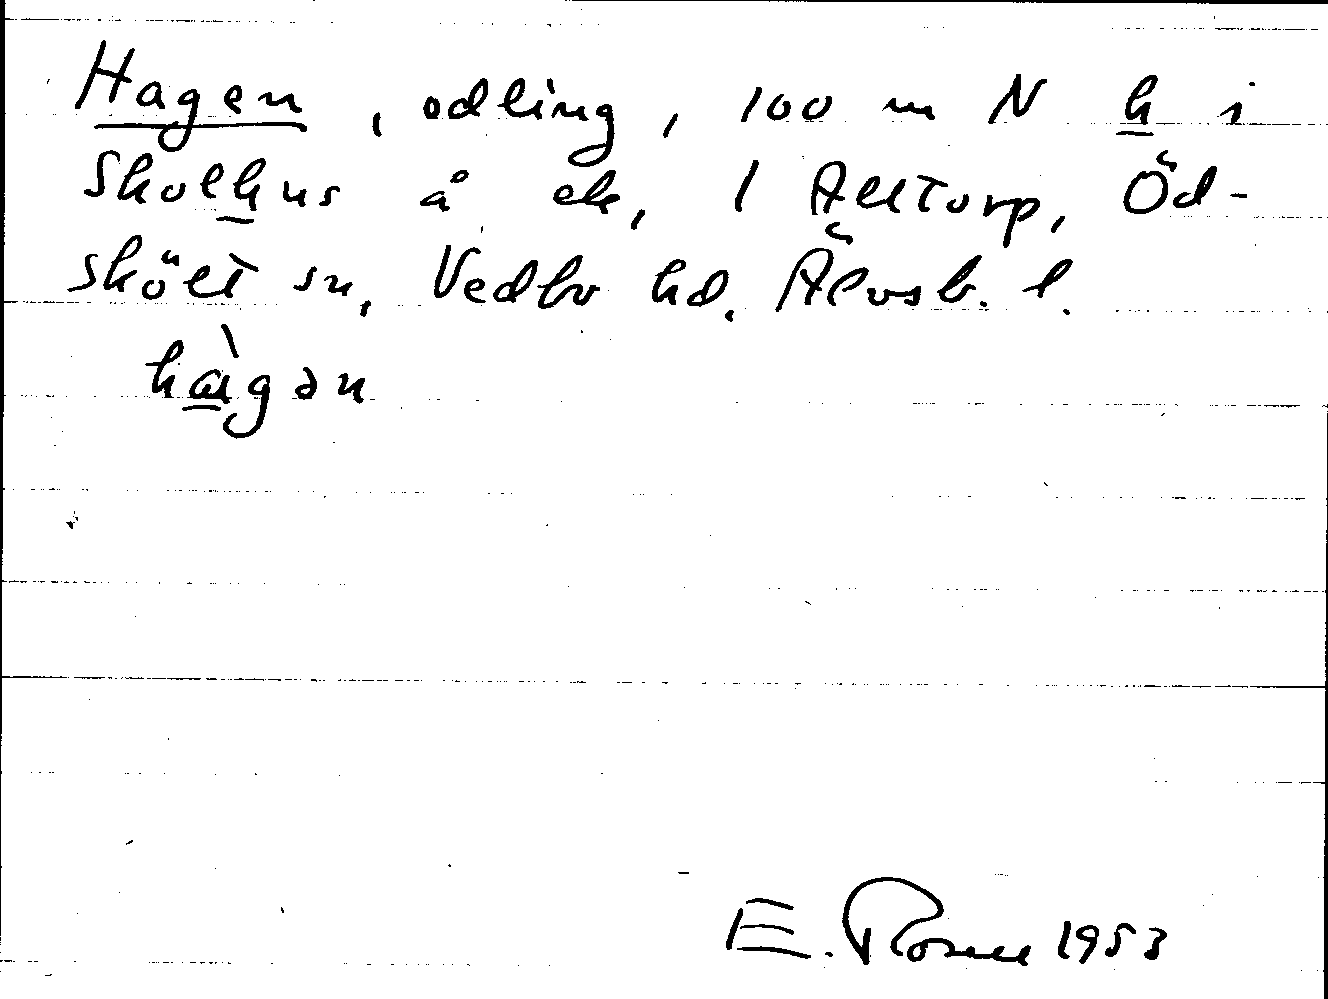 Hagen, odling, 100 m N h i
Skolhus å ek, 1 Alltorp, Öd-
skölt sn, Vedbo hd. Älvsb. l.
hàgən
E. Rosell 1953